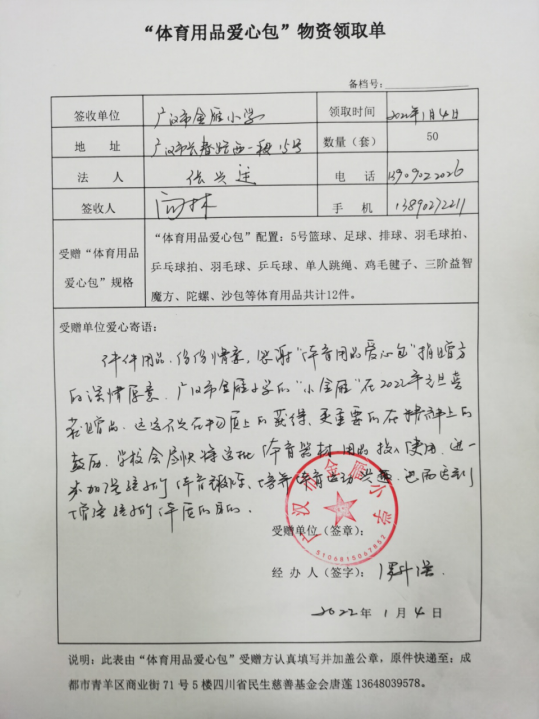 “体育用品爱心包”物资领取单
备档号：
签收单位 广汉市金雁小学 领取时间 2022年1月4日
地 址 广汉市长春路西一段15号 数量（套） 50
法 人 张兴莲 电 话 13909022026
签收人 向林 手 机 13890272211
受赠“体育用品爱心包”规格
“体育用品爱心包”配置：5号篮球、足球、排球、羽毛球拍、
乒乓球拍、羽毛球、乒乓球、单人跳绳、鸡毛毽子、三阶益智
魔方、陀螺、沙包等体育用品共计12件。
受赠单位爱心寄语：
件件用品，份份情意，感谢“体育用品爱心包”捐赠方
的深情厚意。广汉市金雁小学的“小金雁”在2022年元旦喜
获赠品。这不只在物质上的获得，更重要的在精神上的
鼓励。学校会尽快将这批体育器材、用品投入使用，进一
步加强孩子们体育锻炼、培养体育运动兴趣，从而达到
增强孩子们体质的目的。
广汉市金雁小学
5106815067852
受赠单位（签章）：
经 办 人（签字）：
2022年1月4日
说明：此表由“体育用品爱心包”受赠方认真填写并加盖公章，原件快递至：成
都市青羊区商业街71号5楼四川省民生慈善基金会唐莲 13648039578。